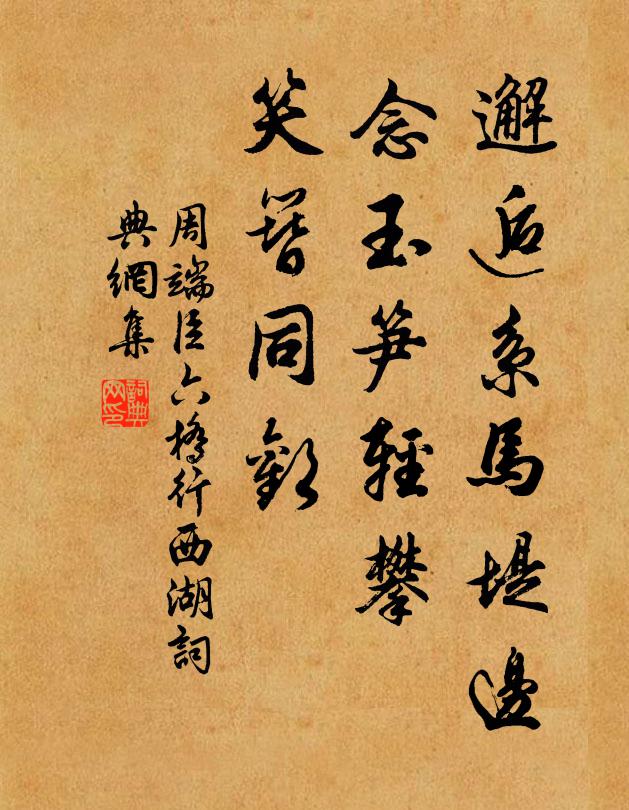 邂逅系馬堤邊
念玉笋輕攀
笑簪同歡
周端臣六橋行西湖詞
典網集
詞典網印